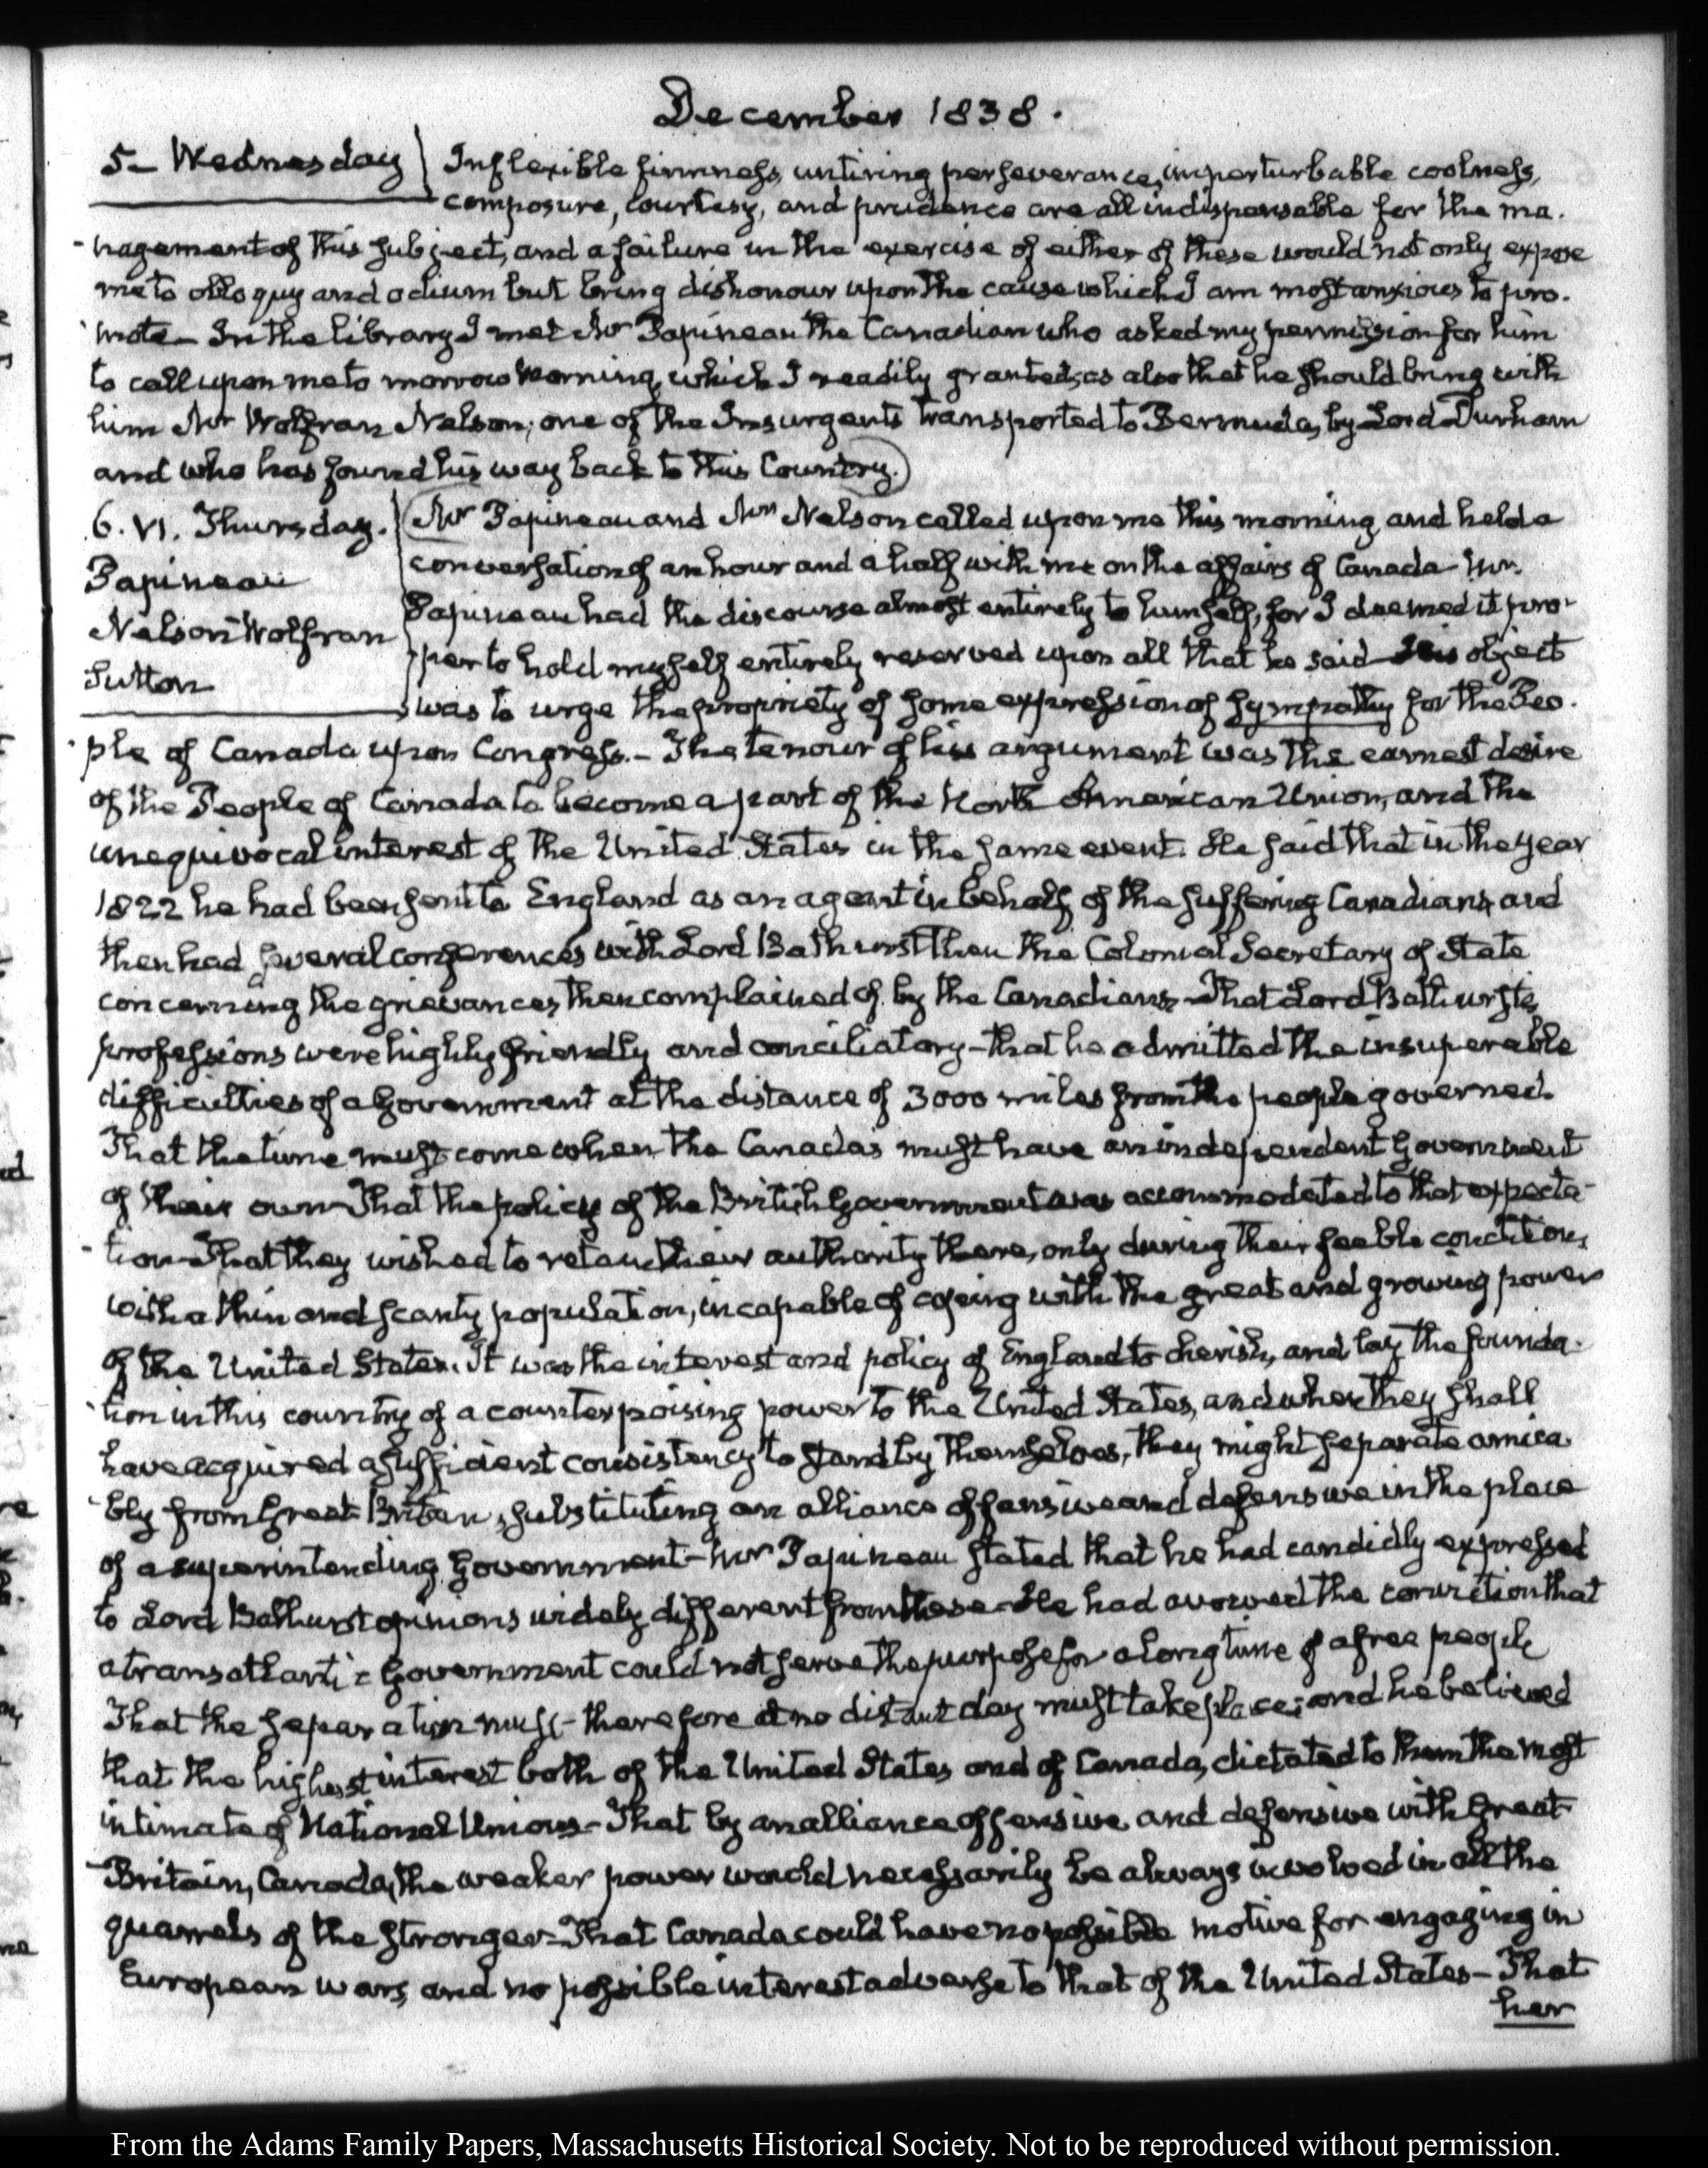 December 1838.
5- Wednesday
Inflexible firmness, untiring perseverance, imperturbable coolness,
composure, courtesy, and prudence are all indispensable for the ma-
-nagement of this subject, and a failure in the exercise of either of these would not only expose
me to obloquy and odium but bring dishonour upon the cause which I am most anxious to pro-
-mote- In the library I met Mr Papineau the Canadian who asked my permission for him
to call upon me to morrow morning, which I readily granted; as also that he should bring with
him Mr Wolfran Nelson; one of the Insurgents transported to Bermuda, by Lord Durham
and who has found his way back to this Country.)
6. VI. Thursday.
Papineau
Nelson Wolfran
Sutton
(Mr Papineau and Mr Nelson called upon me this morning, and held a
conversation of an hour and a half with me on the affairs of Canada- Mr.
Papineau had the discourse almost entirely to himself, for I deemed it pro-
-per to hold myself entirely reserved upon all that he said- His object
was to urge the propriety of some expression of sympathy for the Peo-
-ple of Canada upon Congress.- The tenour of his argument was the earnest desire
of the People of Canada to become a part of the North American Union, and the
unequivocal interest of the United States in the same event. He said that in the year
1822 he had been sent to England as an agent in behalf of the suffering Canadians, and
then had several conferences with Lord Bathurst then the Colonial Secretary of State
concerning the grievances then complained of by the Canadians- That Lord Bathurst's
professions were highly friendly and conciliatory- that he admitted the insuperable
difficulties of a Government at the distance of 3000 miles from the people governed.
That the time must come when the Canadas must have an independent Government
of their own- That the policy of the British Government was accommodated to that expecta-
-tion- That they wished to retain their authority there, only during their feeble condition,
with a thin and scanty population, incapable of coping with the great and growing power
of the United States. It was the interest and policy of England to cherish, and lay the founda-
-tion in this country of a counterpoising power to the United States, and when they shall
have acquired a sufficient consistency to stand by themselves, they might separate amica-
-bly from Great Britain, substituting an alliance offensive and defensive in the place
of a superintending Government- Mr Papineau stated that he had candidly expressed
to Lord Bathurst opinions widely different from these- He had avowed the conviction that
a transatlantic Government could not serve the purpose for a long time of a free people
That the separation must- therefore at no distant day must take place; and he believed
that the highest interest both of the United States and of Canada, dictated to them the most
intimate of National Unions- That by an alliance offensive and defensive with Great
Britain, Canada, the weaker power would necessarily be always involved in all the
quarrels of the stronger- That Canada could have no possible motive for engaging in
European wars, and no possible interest adverse to that of the United States- That
her
From the Adams Family Papers, Massachusetts Historical Society. Not to be reproduced without permission.